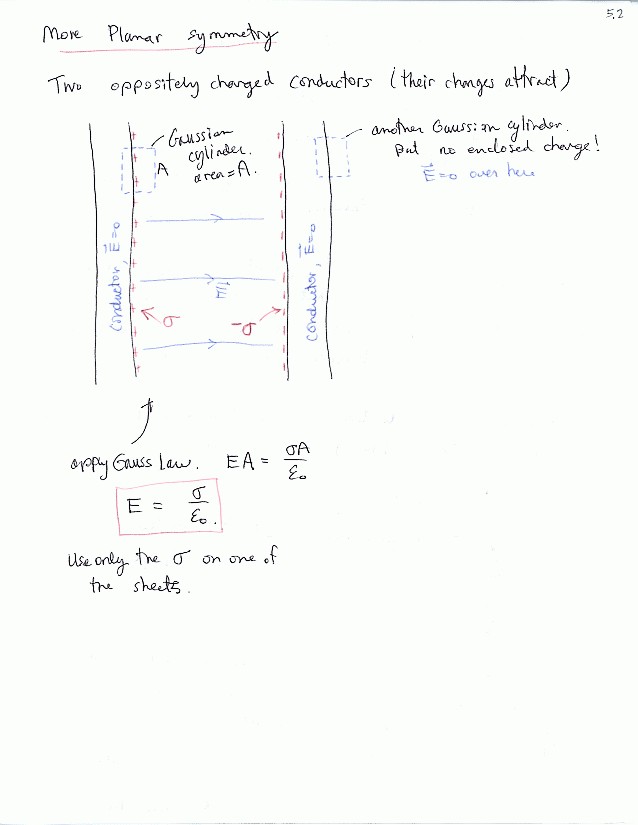 5.2
More Planar symmetry
Two oppositely charged conductors (their charges attract)
Gaussian
cylinder.
area = A.
A
another Gaussian cylinder.
But no enclosed charge!
E⃗=0 over here
conductor, E⃗=0
conductor, E⃗=0
E⃗
σ
-σ
apply Gauss Law. EA = σA/ε₀
E = σ/ε₀.
Use only the σ on one of
the sheets.